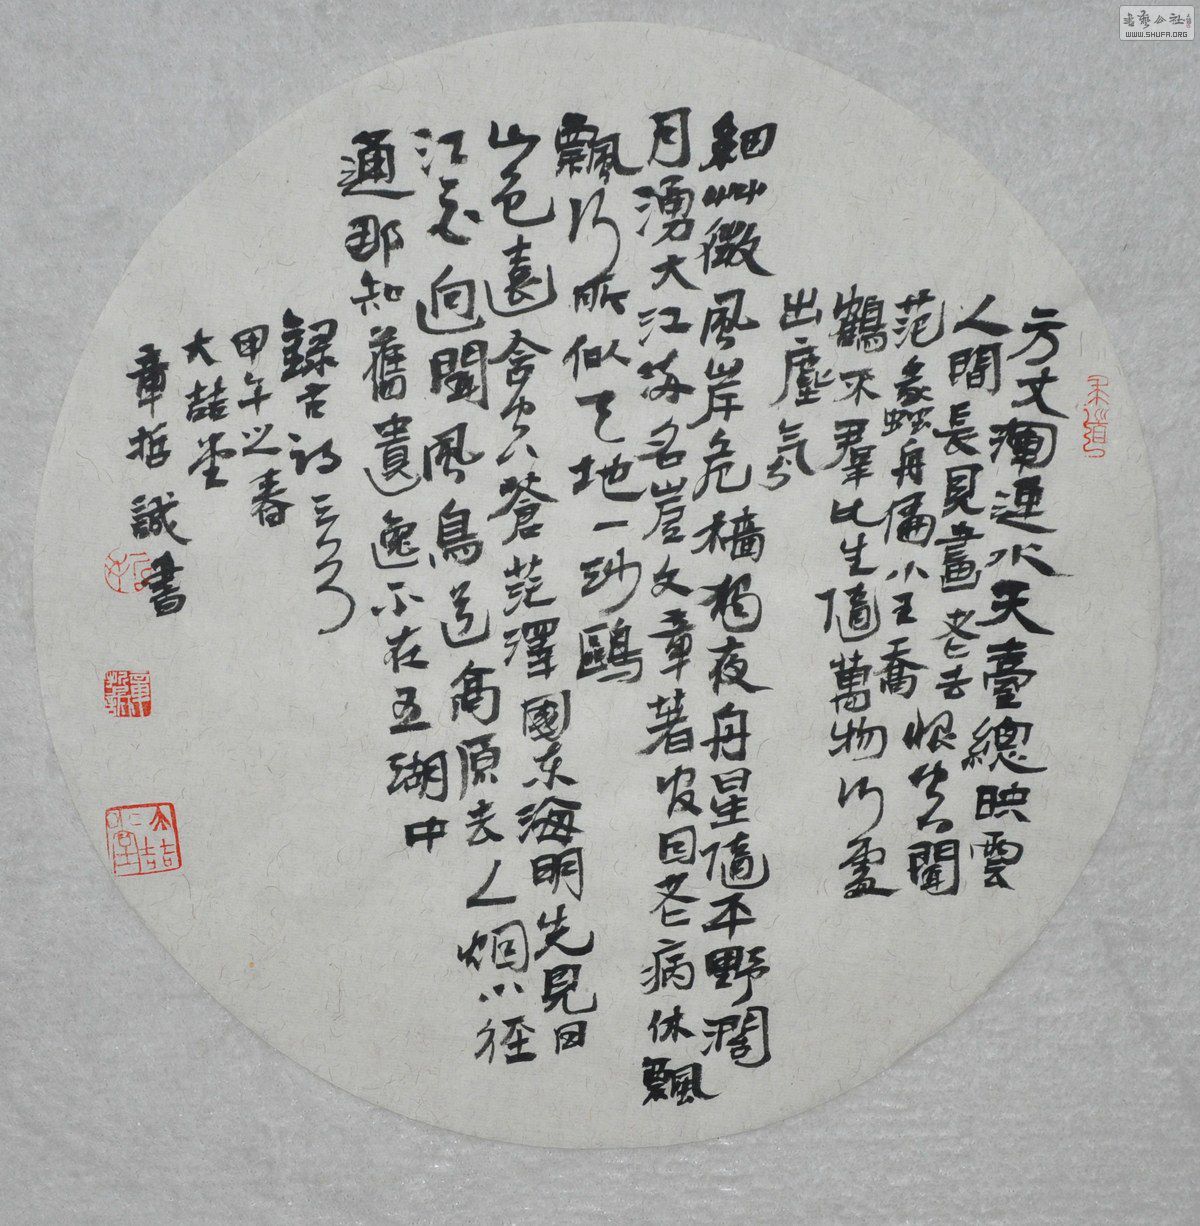 方丈渾連水天臺總映雲
人間長見畫老去恨空聞
范蠡舟偏小王喬
鶴不羣此生隨萬物何處
出塵氛
細艸微風岸危檣獨夜舟星隨平野闊
月湧大江流名豈文章著官因老病休飄
飄何所似天地一沙鷗
山色遠含空蒼茫澤國東海明先見日
江白迥聞風鳥道高原去人烟小徑
通那知舊遺逸不在五湖中
錄古詩三首
甲午之春
大喆堂
章哲誠書
大喆堂
書藝公社
WWW.SHUFA.ORG